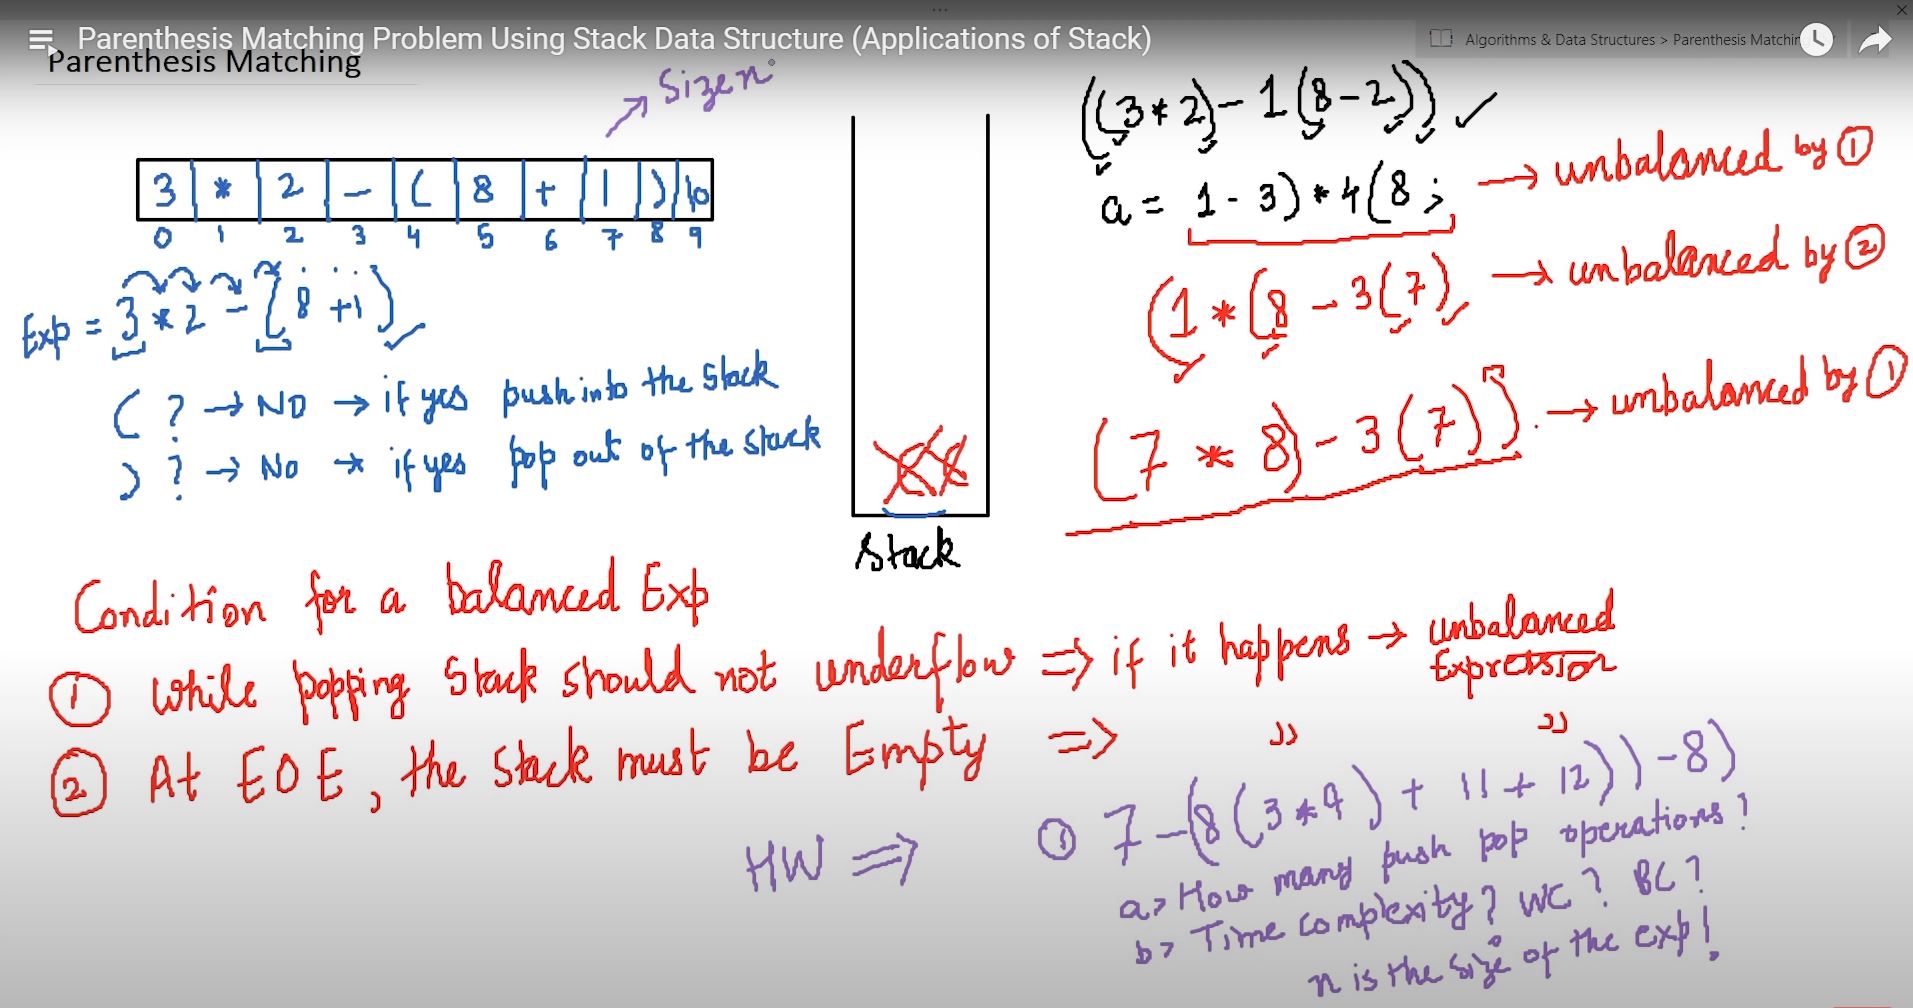 Parenthesis Matching Problem Using Stack Data Structure (Applications of Stack)
Algorithms & Data Structures > Parenthesis Matchin
Parenthesis Matching
Size n
3 * 2 - ( 8 + 1 ) \0
0 1 2 3 4 5 6 7 8 9
Exp = 3 * 2 - ( 8 + 1 )
( ? → NO → if yes push into the Stack
) ? → No → if yes pop out of the stack
Stack
((3*2)-1(8-2))
a = 1-3)*4(8; → unbalanced by 1
(1*(8-3(7), → unbalanced by 2
(7*8)-3(7)). → unbalanced by 1
Condition for a balanced Exp
1 While popping Stack should not underflow => if it happens → unbalanced Expression
2 At EOE, the Stack must be Empty => " "
HW => 1 7-(8(3*9)+11+12))-8)
a> How many push pop operations?
b> Time complexity? WC? BC?
n is the size of the exp!